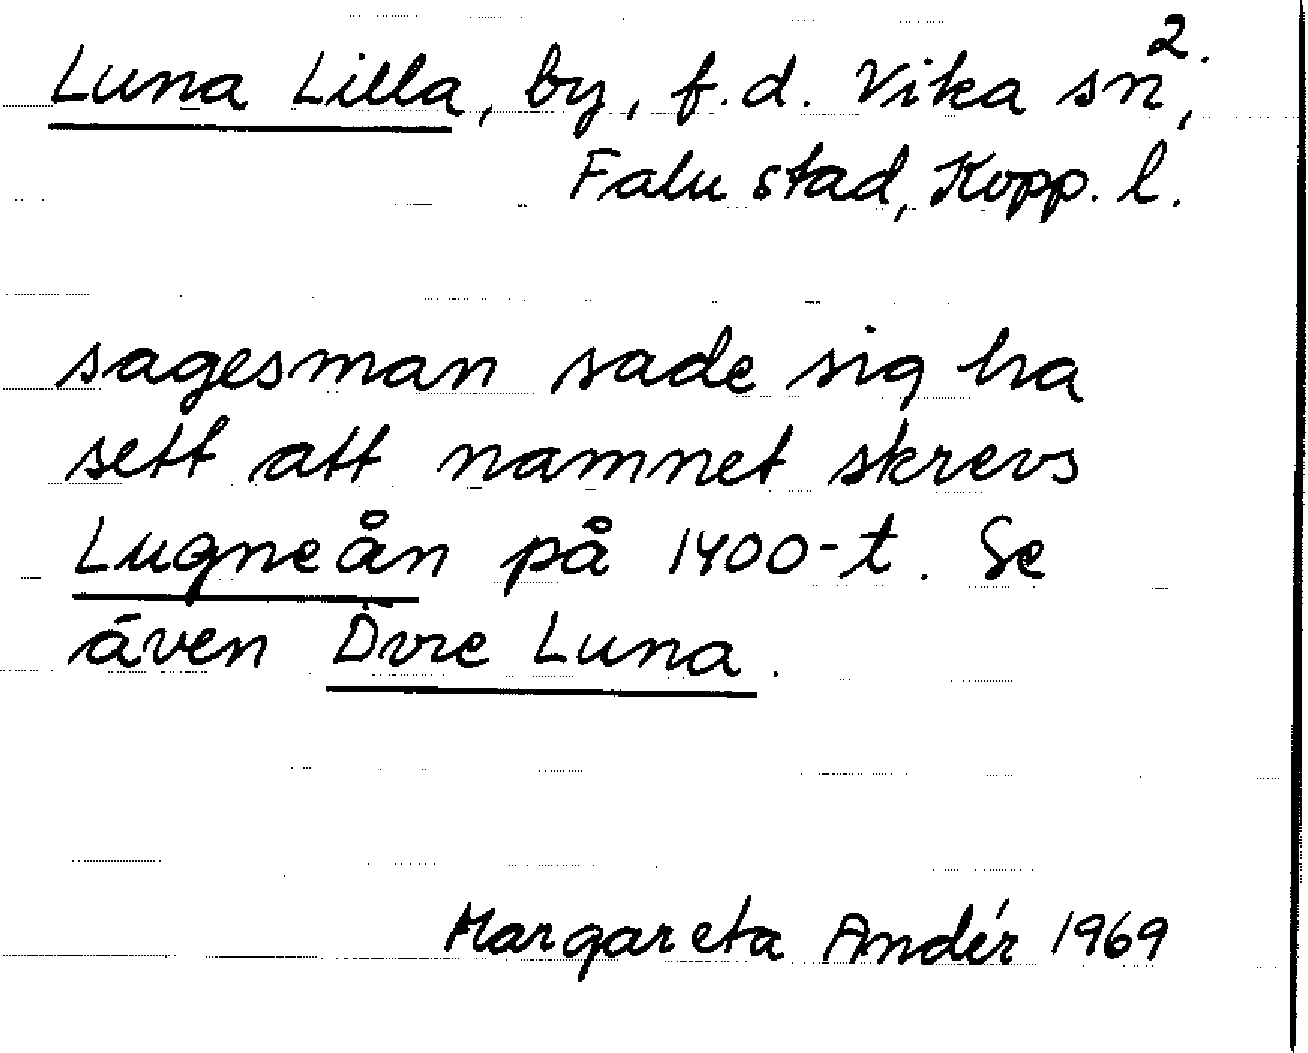 2.
Luna Lilla, by, f.d. Vika sn,
Falu stad, Kopp. l.
sagesman sade sig ha
sett att namnet skrevs
Lugneån på 1400-t. Se
även Övre Luna.
Margareta Andér 1969